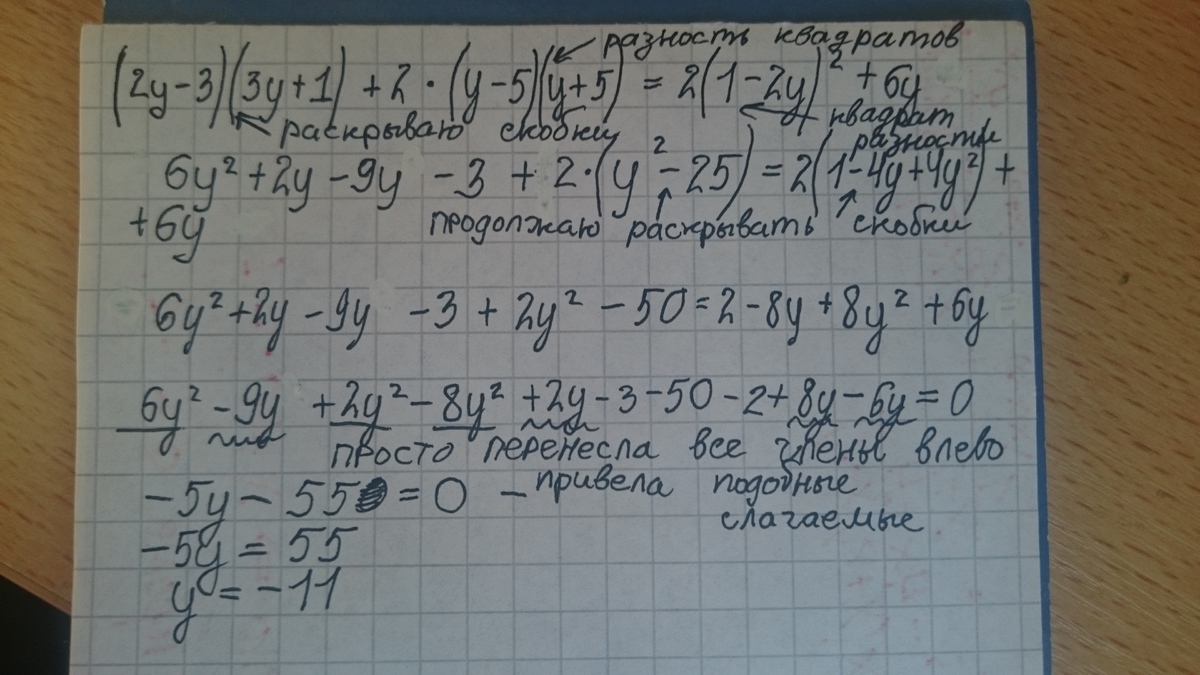 разность квадратов
(2y-3)(3y+1) +2·(y-5)(y+5) = 2(1-2y)² +6y
раскрываю скобки
квадрат
разности
6y²+2y-9y -3 + 2·(y²-25)=2(1-4y+4y²)+
+6y
продолжаю раскрывать скобки
6y²+2y-9y -3 + 2y² -50=2-8y+8y²+6y
6y²-9y +2y²-8y²+2y-3-50-2+8y-6y=0
просто перенесла все члены влево
-5y-55=0 - привела подобные
слагаемые
-5y=55
y=-11